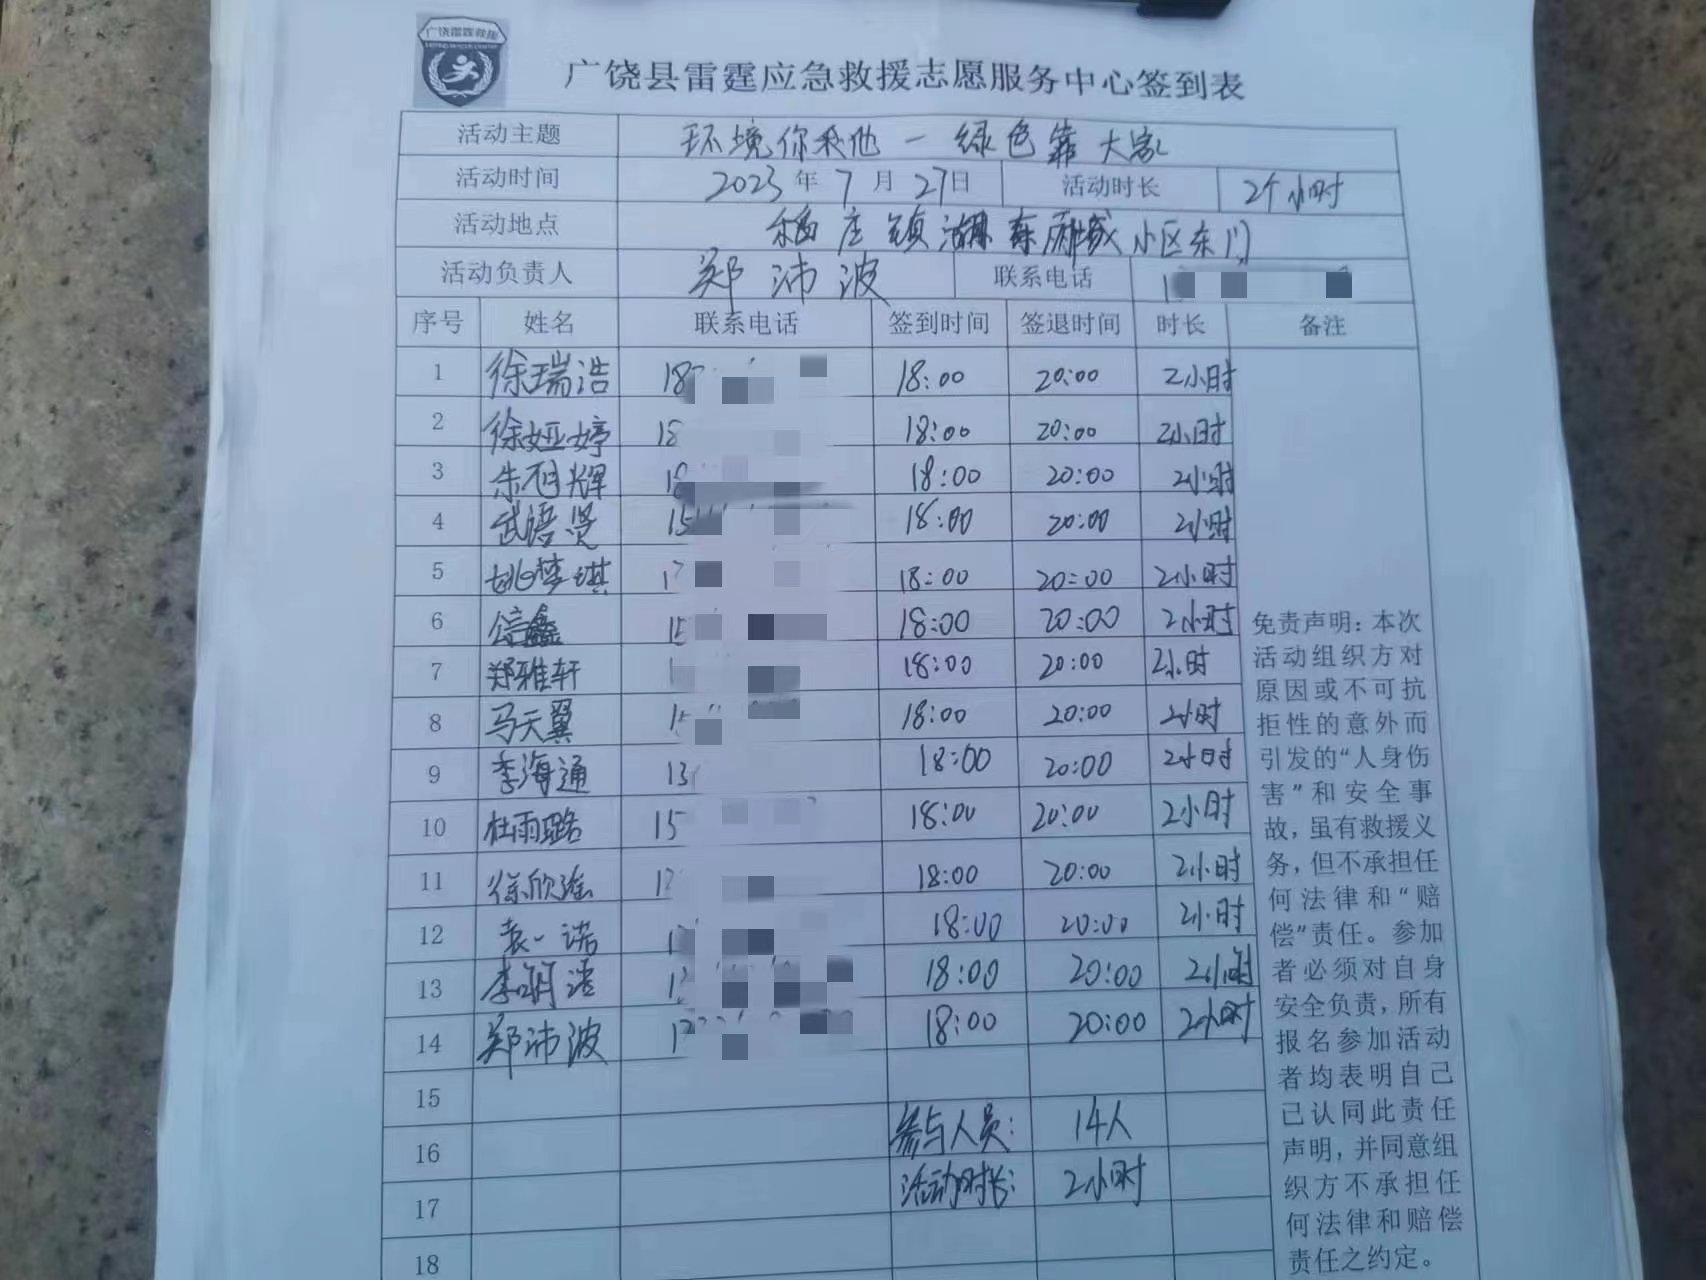 广饶雷霆救援
广饶县雷霆应急救援志愿服务中心签到表
活动主题 环境你我他一绿色靠大家
活动时间 2023年7月27日 活动时长 2个小时
活动地点 稻庄镇 小区东门
活动负责人 郑沛波 联系电话 1
序号 姓名 联系电话 签到时间 签退时间 时长 备注
1 徐瑞浩 18 18:00 20:00 2小时
2 徐娅婷 18 18:00 20:00 2小时
3 朱旭辉 18 18:00 20:00 2小时
4 武语贤 15 18:00 20:00 2小时
5 姚梦琪 17 18:00 20:00 2小时
6 鑫 15 18:00 20:00 2小时
7 郑雅轩 18:00 20:00 2小时
8 马天翼 15 18:00 20:00 2小时
9 李海通 13 18:00 20:00 2小时
10 杜雨璐 15 18:00 20:00 2小时
11 徐欣瑶 18:00 20:00 2小时
12 袁一诺 18:00 20:00 2小时
13 李明浩 18:00 20:00 2小时
14 郑沛波 18:00 20:00 2小时
15
16 参与人员: 14人
17 活动时长: 2小时
18
免责声明:本次
活动组织方对
原因或不可抗
拒性的意外而
引发的“人身伤
害”和安全事
故,虽有救援义
务,但不承担任
何法律和“赔
偿”责任。参加
者必须对自身
安全负责,所有
报名参加活动
者均表明自己
已认同此责任
声明,并同意组
织方不承担任
何法律和赔偿
责任之约定。